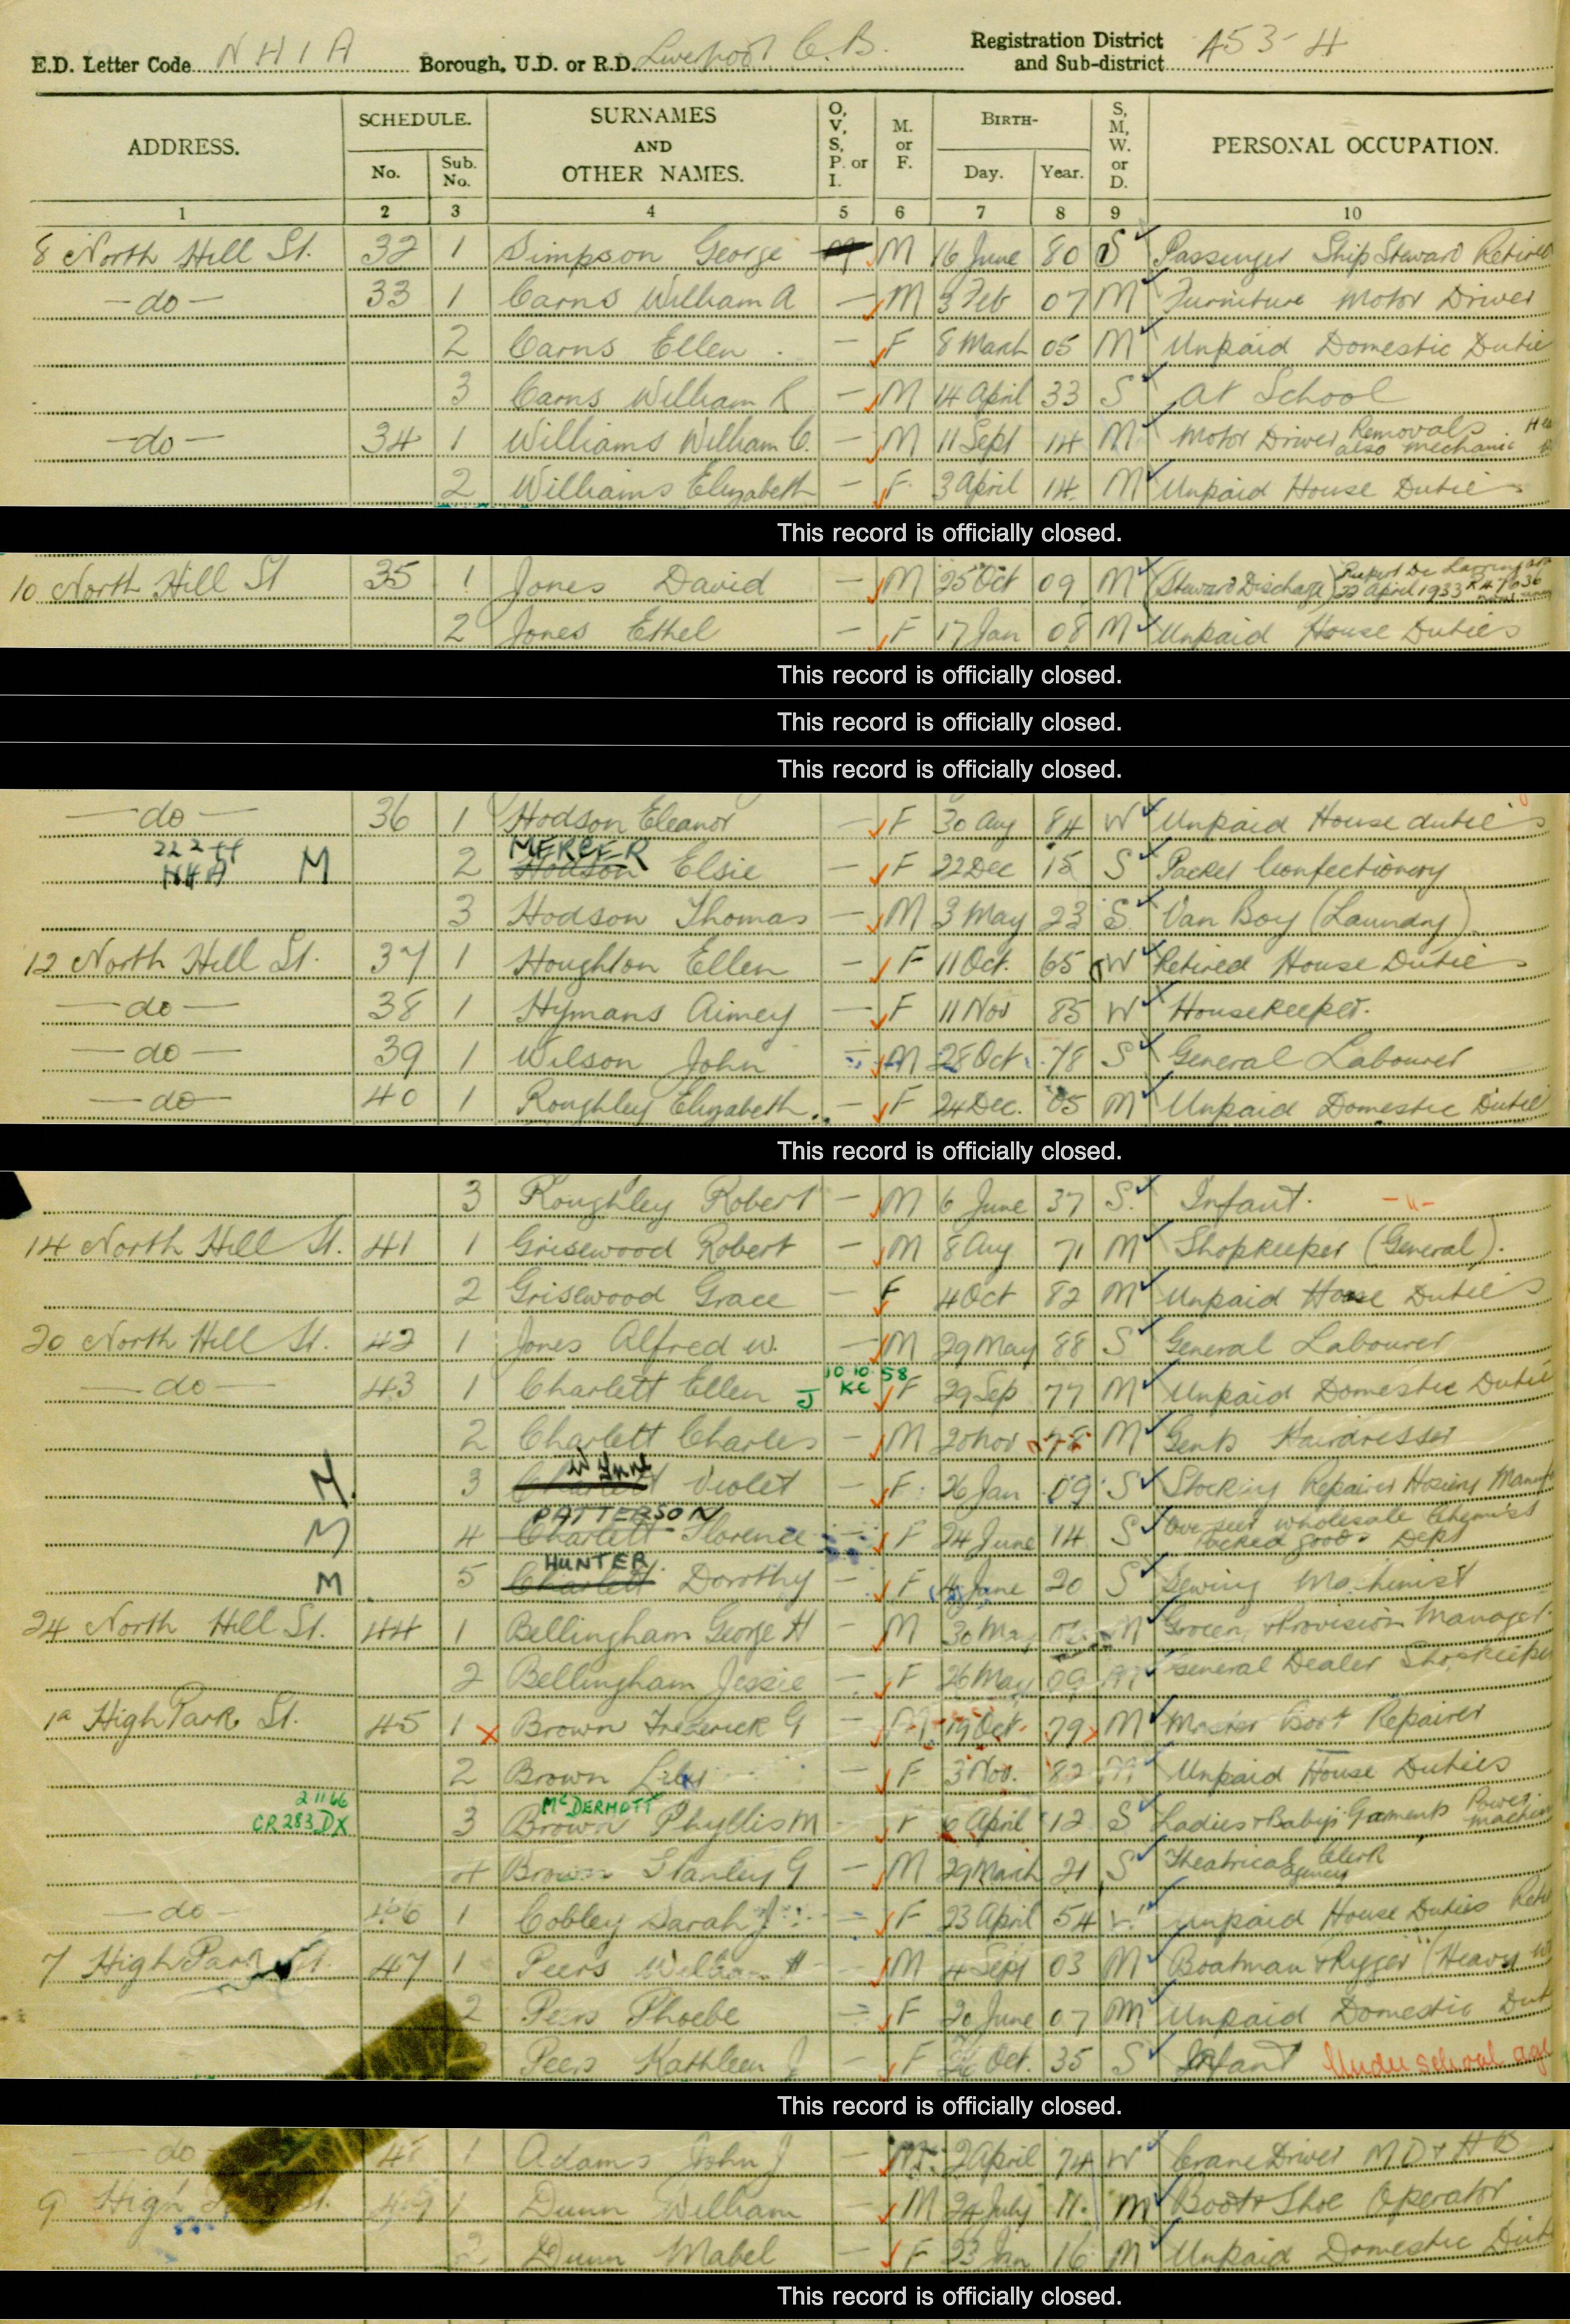 E.D. Letter Code NHIA Borough, U.D. or R.D. Liverpool C.B. Registration District and Sub-district 453-4
ADDRESS. SCHEDULE. No. Sub. No. SURNAMES AND OTHER NAMES. O, V, S, P. or I. M. or F. BIRTH- Day. Year. S, M, W. or D. PERSONAL OCCUPATION.
1 2 3 4 5 6 7 8 9 10
8 North Hill St. 32 1 Simpson George M 16 June 80 S Passenger Ship Steward Retired
—do— 33 1 Carns William A — M 3 Feb 07 M Furniture Motor Driver
2 Carns Ellen — F 8 March 05 M Unpaid Domestic Dutie
3 Carns William R — M 14 April 33 S at School
—do— 34 1 Williams William C. — M 11 Sept 14 M Motor Driver Removals also mechanic
2 Williams Elizabeth — F 3 April 14 M Unpaid House Duties
This record is officially closed.
10 North Hill St 35 1 Jones David — M 25 Oct 09 M (Steward Discharge) 22 April 1933
2 Jones Ethel — F 17 Jan 08 M Unpaid House Duties
This record is officially closed.
This record is officially closed.
This record is officially closed.
—do— 36 1 Hodson Eleanor — F 30 Aug 84 W Unpaid House duties
M 2 Hodson MERCER Elsie — F 22 Dec 15 S Packer Confectionery
3 Hodson Thomas — M 3 May 23 S Van Boy (Laundry)
12 North Hill St. 37 1 Houghton Ellen — F 11 Oct. 65 W Retired House Duties
—do— 38 1 Hymans Aimey — F 11 Nov 85 W Housekeeper.
—do— 39 1 Wilson John — M 28 Oct 78 S General Labourer
—do— 40 1 Roughley Elizabeth. — F 24 Dec. 05 M Unpaid Domestic Duties
This record is officially closed.
3 Roughley Robert — M 6 June 37 S. Infant. -"-
14 North Hill St. 41 1 Grisewood Robert — M 8 Aug 71 M Shopkeeper (General).
2 Grisewood Grace — F 4 Oct 82 M Unpaid House Duties
20 North Hill St. 42 1 Jones Alfred W. — M 29 May 88 S General Labourer
—do— 43 1 Charlett Ellen J 10 10 58 KC F 29 Sep 77 M Unpaid Domestic Dutie
2 Charlett Charles — M 20 Nov 78 M Gents Hairdresser
M. 3 Charlett Violet — F 26 Jan 09 S Stocking Repairer Hosiery Manuf
M 4 Charlett PATTERSON Florence F 24 June 14 S Overseer wholesale Chemist Packed goods Dept
M 5 Charlett HUNTER Dorothy — F 4 June 20 S Sewing Machinist
24 North Hill St. 44 1 Bellingham George H — M 30 May M Grocery & Provision Manager.
2 Bellingham Jessie — F 26 May 09 M General Dealer Shopkeeper
1a High Park St. 45 1 x Brown Frederick G M 19 Oct. 79 M Master Boot Repairer
2 Brown Lily F 3 Nov. 82 M Unpaid House Duties
2 11 66 CR 283 DX 3 Brown McDERMOTT Phyllis M F 6 April 12 S Ladies & Babys Garments Power machin
4 Brown Stanley G — M 29 March 21 S Theatrical Agency Clerk
—do— 46 1 Cobley Sarah J — F 23 April 54 W Unpaid House Duties Retd
7 High Park St. 47 1 Peers William H — M 4 Sept 03 M Boatman & Rigger (Heavy W
2 Peers Phoebe — F 20 June 07 M Unpaid Domestic Dut
Peers Kathleen J — F 26 Oct. 35 S Infant Under school age
This record is officially closed.
—do— 48 1 Adams John J — M 2 April 74 W Crane Driver M D & H B
9 High St. 49 1 Dunn William — M 24 July 11. M Boot & Shoe Operator
2 Dunn Mabel — F 23 Jan 16 M Unpaid Domestic Dut
This record is officially closed.